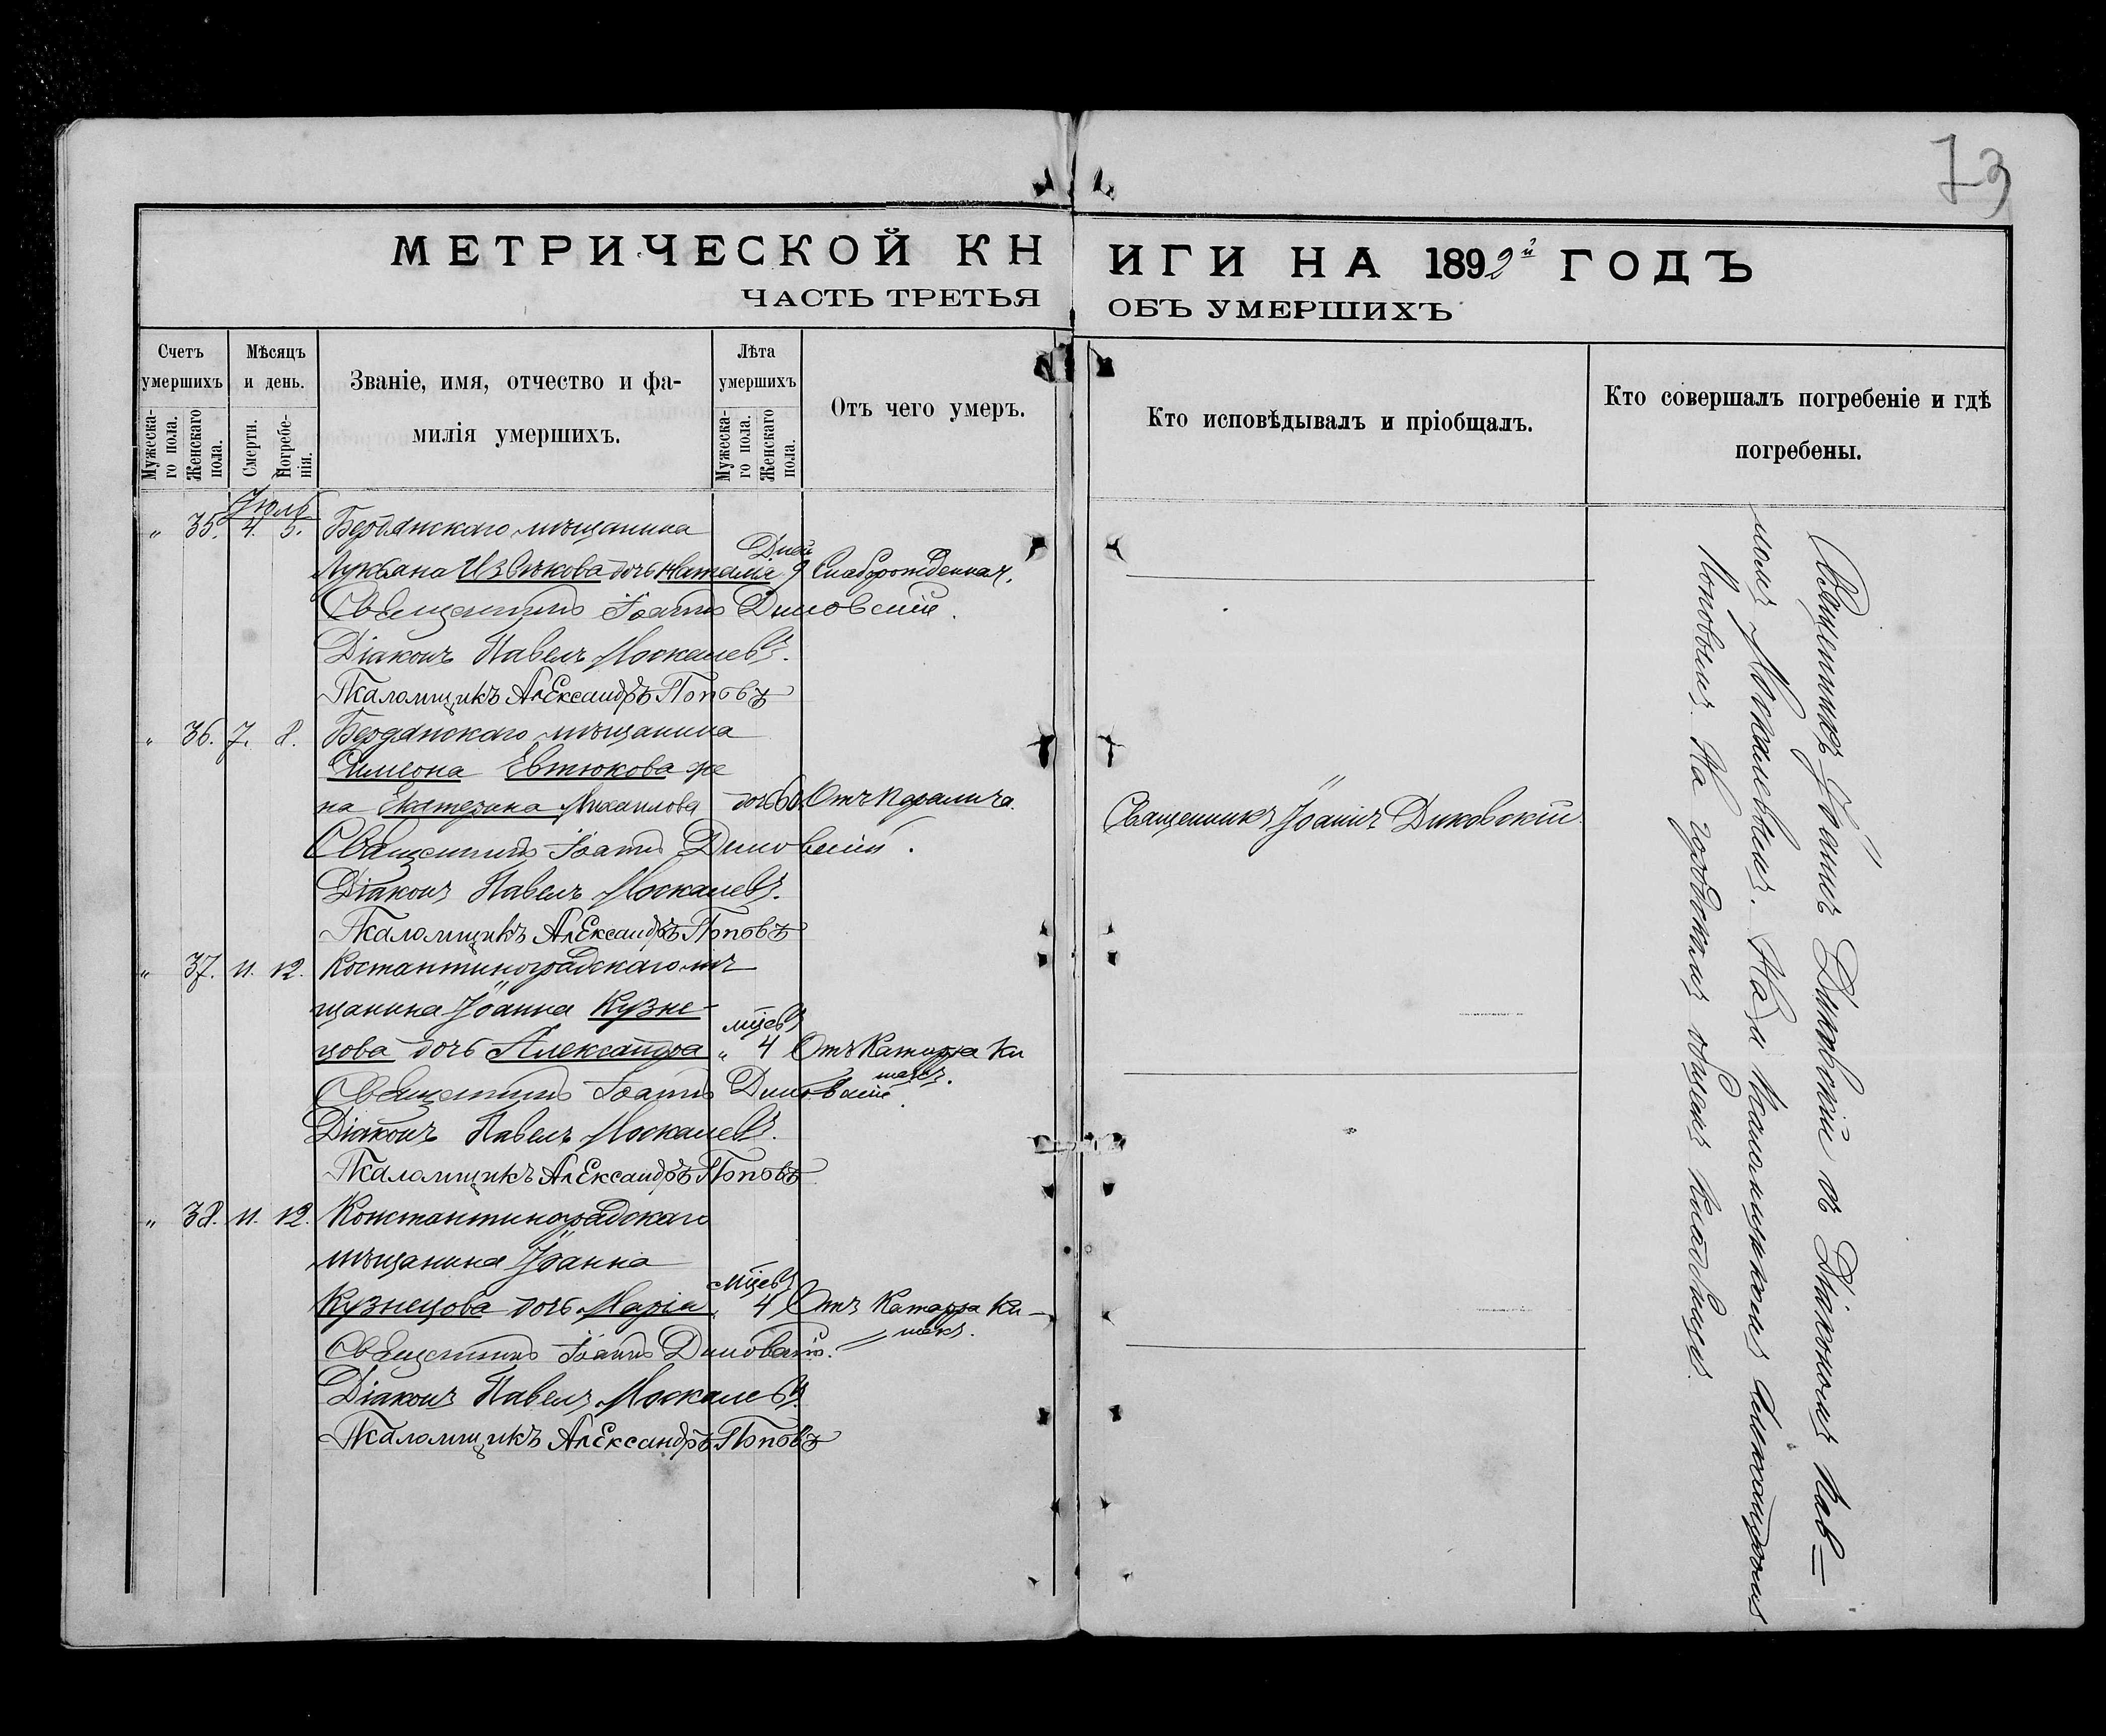 73
МЕТРИЧЕСКОЙ КНИГИ НА 1892й ГОДЪ
ЧАСТЬ ТРЕТЬЯ ОБЪ УМЕРШИХЪ
Счетъ умершихъ
Мужескаго пола.
Женскаго пола.
Мѣсяцъ и день.
Смерти.
Погребенія.
Званіе, имя, отчество и фамилія умершихъ.
Лѣта умершихъ
Мужескаго пола.
Женскаго пола.
Отъ чего умеръ.
Кто исповѣдывалъ и пріобщалъ.
Кто совершалъ погребеніе и гдѣ погребены.
Іюль
" 35. 4. 5. Бердянскаго мѣщанина
Дней
Лукіана Извѣкова дочь Наталія 9 Слаборожденная.
Священникъ Іоаннъ Диковскій.
Діаконъ Павелъ Москалевъ.
Псаломщикъ Александръ Поповъ
" 36. 7. 8. Бердянскаго мѣщанина
Симеона Евтюкова же
на Екатерина Михаилова дочь 60 Отъ Паралича. Священникъ Іоаннъ Диковскій
Священникъ Іоаннъ Диковскій.
Діаконъ Павелъ Москалевъ.
Псаломщикъ Александръ Поповъ
" 37. 11. 12. Костантиноградскаго мѣ
щанина Іоанна Кузне-
мцевъ
цова дочь Александра " 4 Отъ Катарра Ки
шекъ.
Священникъ Іоаннъ Диковскій.
Діаконъ Павелъ Москалевъ.
Псаломщикъ Александръ Поповъ
" 38. 11. 12. Константиноградскаго
мѣщанина Іоанна
мцевъ
Кузнецова дочь Марія 4 Отъ Катарра Ки-
шекъ.
Священникъ Іоаннъ Диковскій.
Діаконъ Павелъ Москалевъ
Псаломщикъ Александръ Поповъ
Священникъ Іоаннъ Диковскій съ Діакономъ Пав=
ломъ Москалевымъ. И Псаломщикомъ Александромъ
Поповымъ. На градскомъ общемъ кладбищѣ.